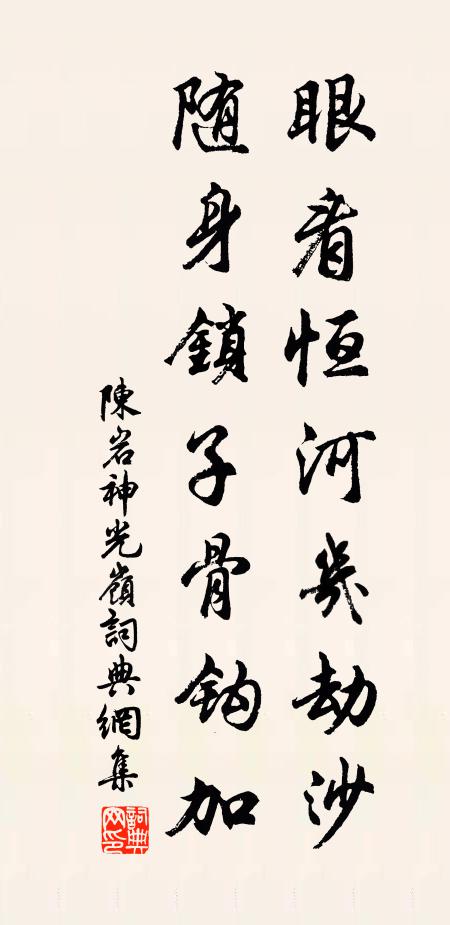 眼看恒河幾劫沙
随身鎖子骨鈎加
陳岩神光嶺詞典網集
詞典網印